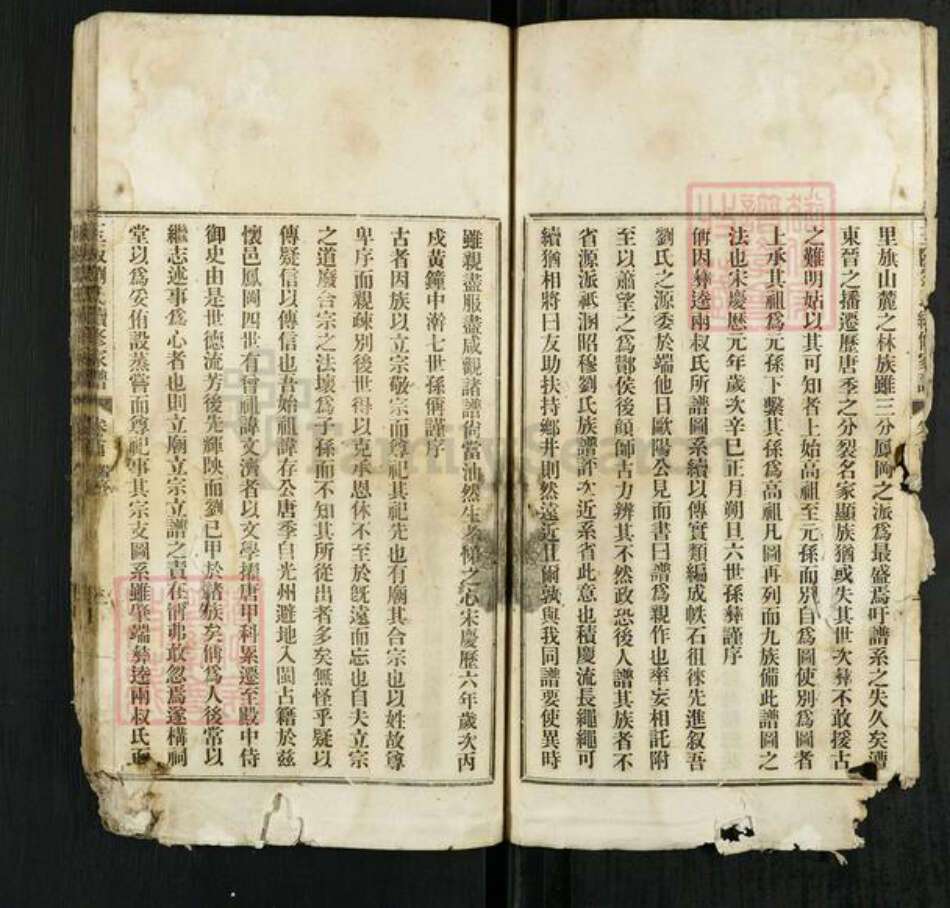 里旗山麓之林族雖三分鳳岡之派爲最盛焉吁譜系之失久矣遭
東晉之播遷歷唐季之分裂名家顯族猶或失其世次彝不敢援古
之難明姑以其可知者上始高祖至元孫而別自爲圖使別爲圖者
上承其祖爲元孫下繫其孫爲高祖凡圖再列而九族備此譜圖之
法也宋慶歷元年歲次辛巳正月朔旦六世孫彝謹序
偁因彝逵兩叔氏所譜圖系續以傳實類編成帙石徂徠先進叙吾
劉氏之源委於端他日歐陽公見而書曰譜爲親作也率妄相託附
至以蕭望之爲酇侯後顔師古力辨其不然政恐後人譜其族者不
省源派祇溷昭穆劉氏族譜詐次近系省此意也積慶流長繩繩可
續猶相將曰友助扶持鄉井則然遠近世爾孰與我同譜要使異時
雖親盡服盡咸觀諸譜尚當油然生孝悌之心宋慶歷六年歲次丙
戌黃鐘中澣七世孫偁謹序
古者因族以立宗敬宗而尊祀其祀先也有廟其合宗也以姓故尊
卑序而親疎別後世得以克承恩休不至於旣遠而忘也自夫立宗
之道廢合宗之法壞爲子孫而不知其所從出者多矣無怪乎疑以
傳疑信以傳信也吾始祖諱存公唐季自光州避地入閩占籍於兹
懷邑鳳岡四世有曾祖諱文濟者以文學擢唐甲科累遷至殿中侍
御史由是世德流芳後先輝映而劉已甲於諸族矣偁爲人後常以
繼志述事爲心者也則立廟立宗立譜之責在偁弗敢忽焉遂構祠
堂以爲妥侑設蒸嘗而尊祀事其宗支圖系雖肇端彝逵兩叔氏而
劉氏續修家譜
FamilySearch